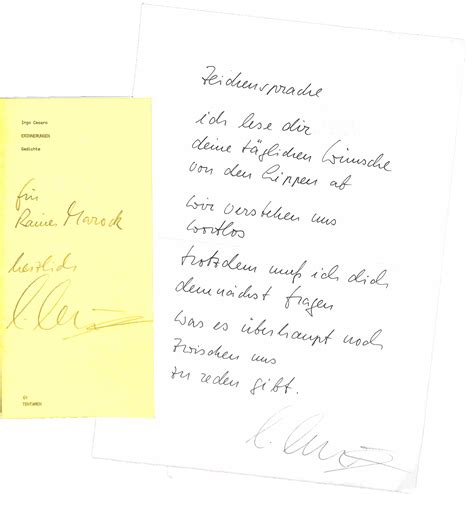 Ingo Cesaro
ERINNERUNGEN
Gedichte
für
Rainer Marock
herzlich
TEXTUREN
Zeichensprache
ich lese dir
deine täglichen Wünsche
von den Lippen ab
Wir verstehen uns
wortlos
trotzdem muß ich dich
demnächst fragen
was es überhaupt noch
zwischen uns
zu reden gibt.